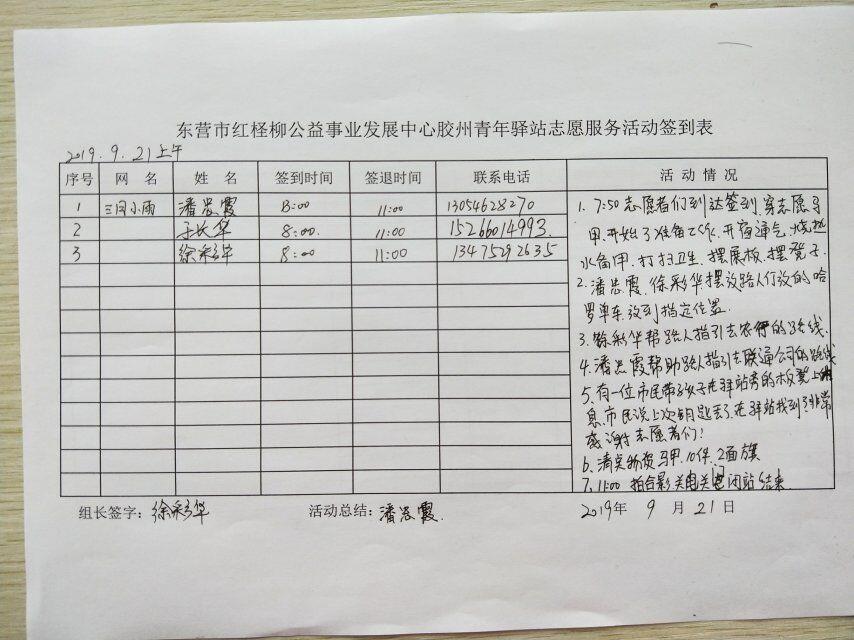 东营市红柽柳公益事业发展中心胶州青年驿站志愿服务活动签到表
2019.9.21上午
序号 网名 姓名 签到时间 签退时间 联系电话 活动情况
1 潘忠霞 8:00 11:00 13054628270
2 于长华 8:00. 11:00 15266014993.
3 徐彩华 8:00 11:00 13475292635
1. 7:50志愿者们到达签到,穿志愿马
甲.开始了准备工作.开窗通气,烧热
水备用.打扫卫生.摆展板.摆凳子.
2.潘忠霞.徐彩华.摆放路人们放的哈
罗单车.放到指定位置.
3.徐彩华帮路人指引去农行的路线.
4.潘忠霞帮助路人指引去联通公司的路线
5.有一位市民带孩子在驿站旁的板凳上休
息.市民说上次钥匙丢了.在驿站找到了非常
感谢志愿者们!
6.清点物资马甲.10件.2面旗
7. 11:00 拍合影关电关门闭站结束.
组长签字:徐彩华 活动总结:潘忠霞. 2019年9月21日